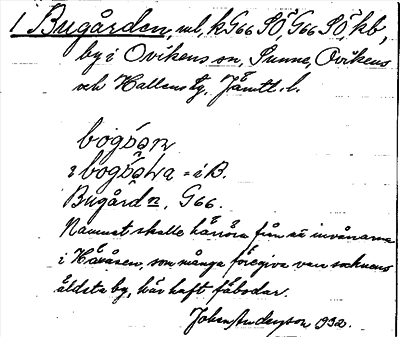 1 Bugården, ml, k G66 SÖ, G66 SÖ kb,
by i Ovikens sn, Sunne, Ovikens
och Hallens tg, Jämtl. l.
i = i B.
Bugårdn, G66.
Namnet skulle härröra från att invånarna
i Håvåsen, som många föregiva vara socknens
äldsta by, här haft fäbodar.
Johan Anderson 1932.